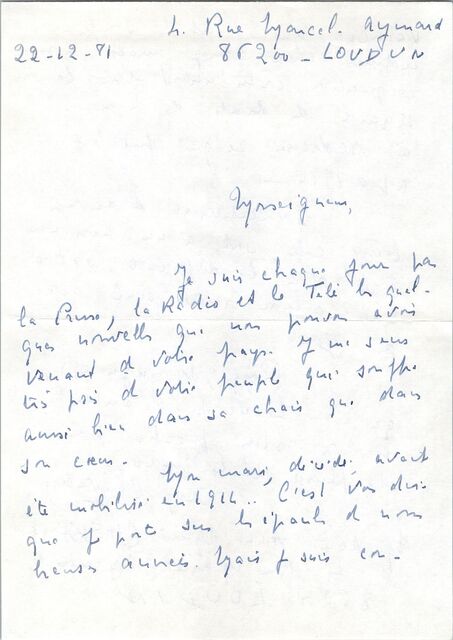 4. Rue Marcel. Aymard
22-12-81 86200 - LOUDUN
Monseigneur,
Je suis chaque jour par
la Presse, la Radio et la Télé les quel-
ques nouvelles que nous pouvons avoir
venant de votre pays. Je me sens
très près de votre peuple qui souffre
aussi bien dans sa chair que dans
son cœur.
Mon mari, décédé, avait
été mobilisé en 1914.. C'est vous dire
que je porte sur les épaules de nom
breuses années. Mais je suis con-